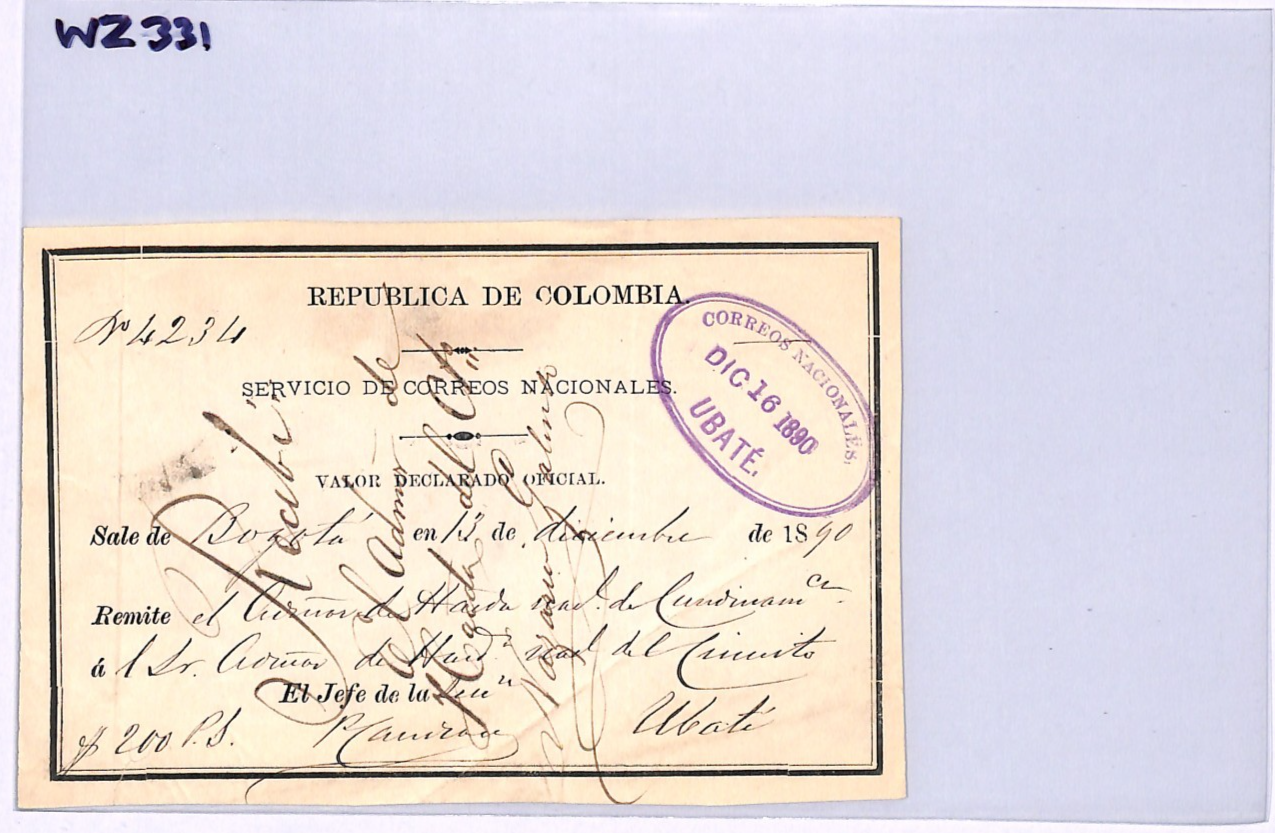 WZ331
REPUBLICA DE COLOMBIA.
Nº 4234
SERVICIO DE CORREOS NACIONALES.
VALOR DECLARADO OFICIAL.
CORREOS NACIONALES.
DIC 16 1890
UBATÉ.
Sale de Bogotá en 13 de diciembre de 1890
Remite el Admor de Hacda nacl. de Cundinamca.
á l Sr. Admor de Hacda nacl del Circuito
El Jefe de la
$ 200 P.S. Ubaté
"Recibí"
El Admor de
Hacda del Cto"
Nazario Galindo